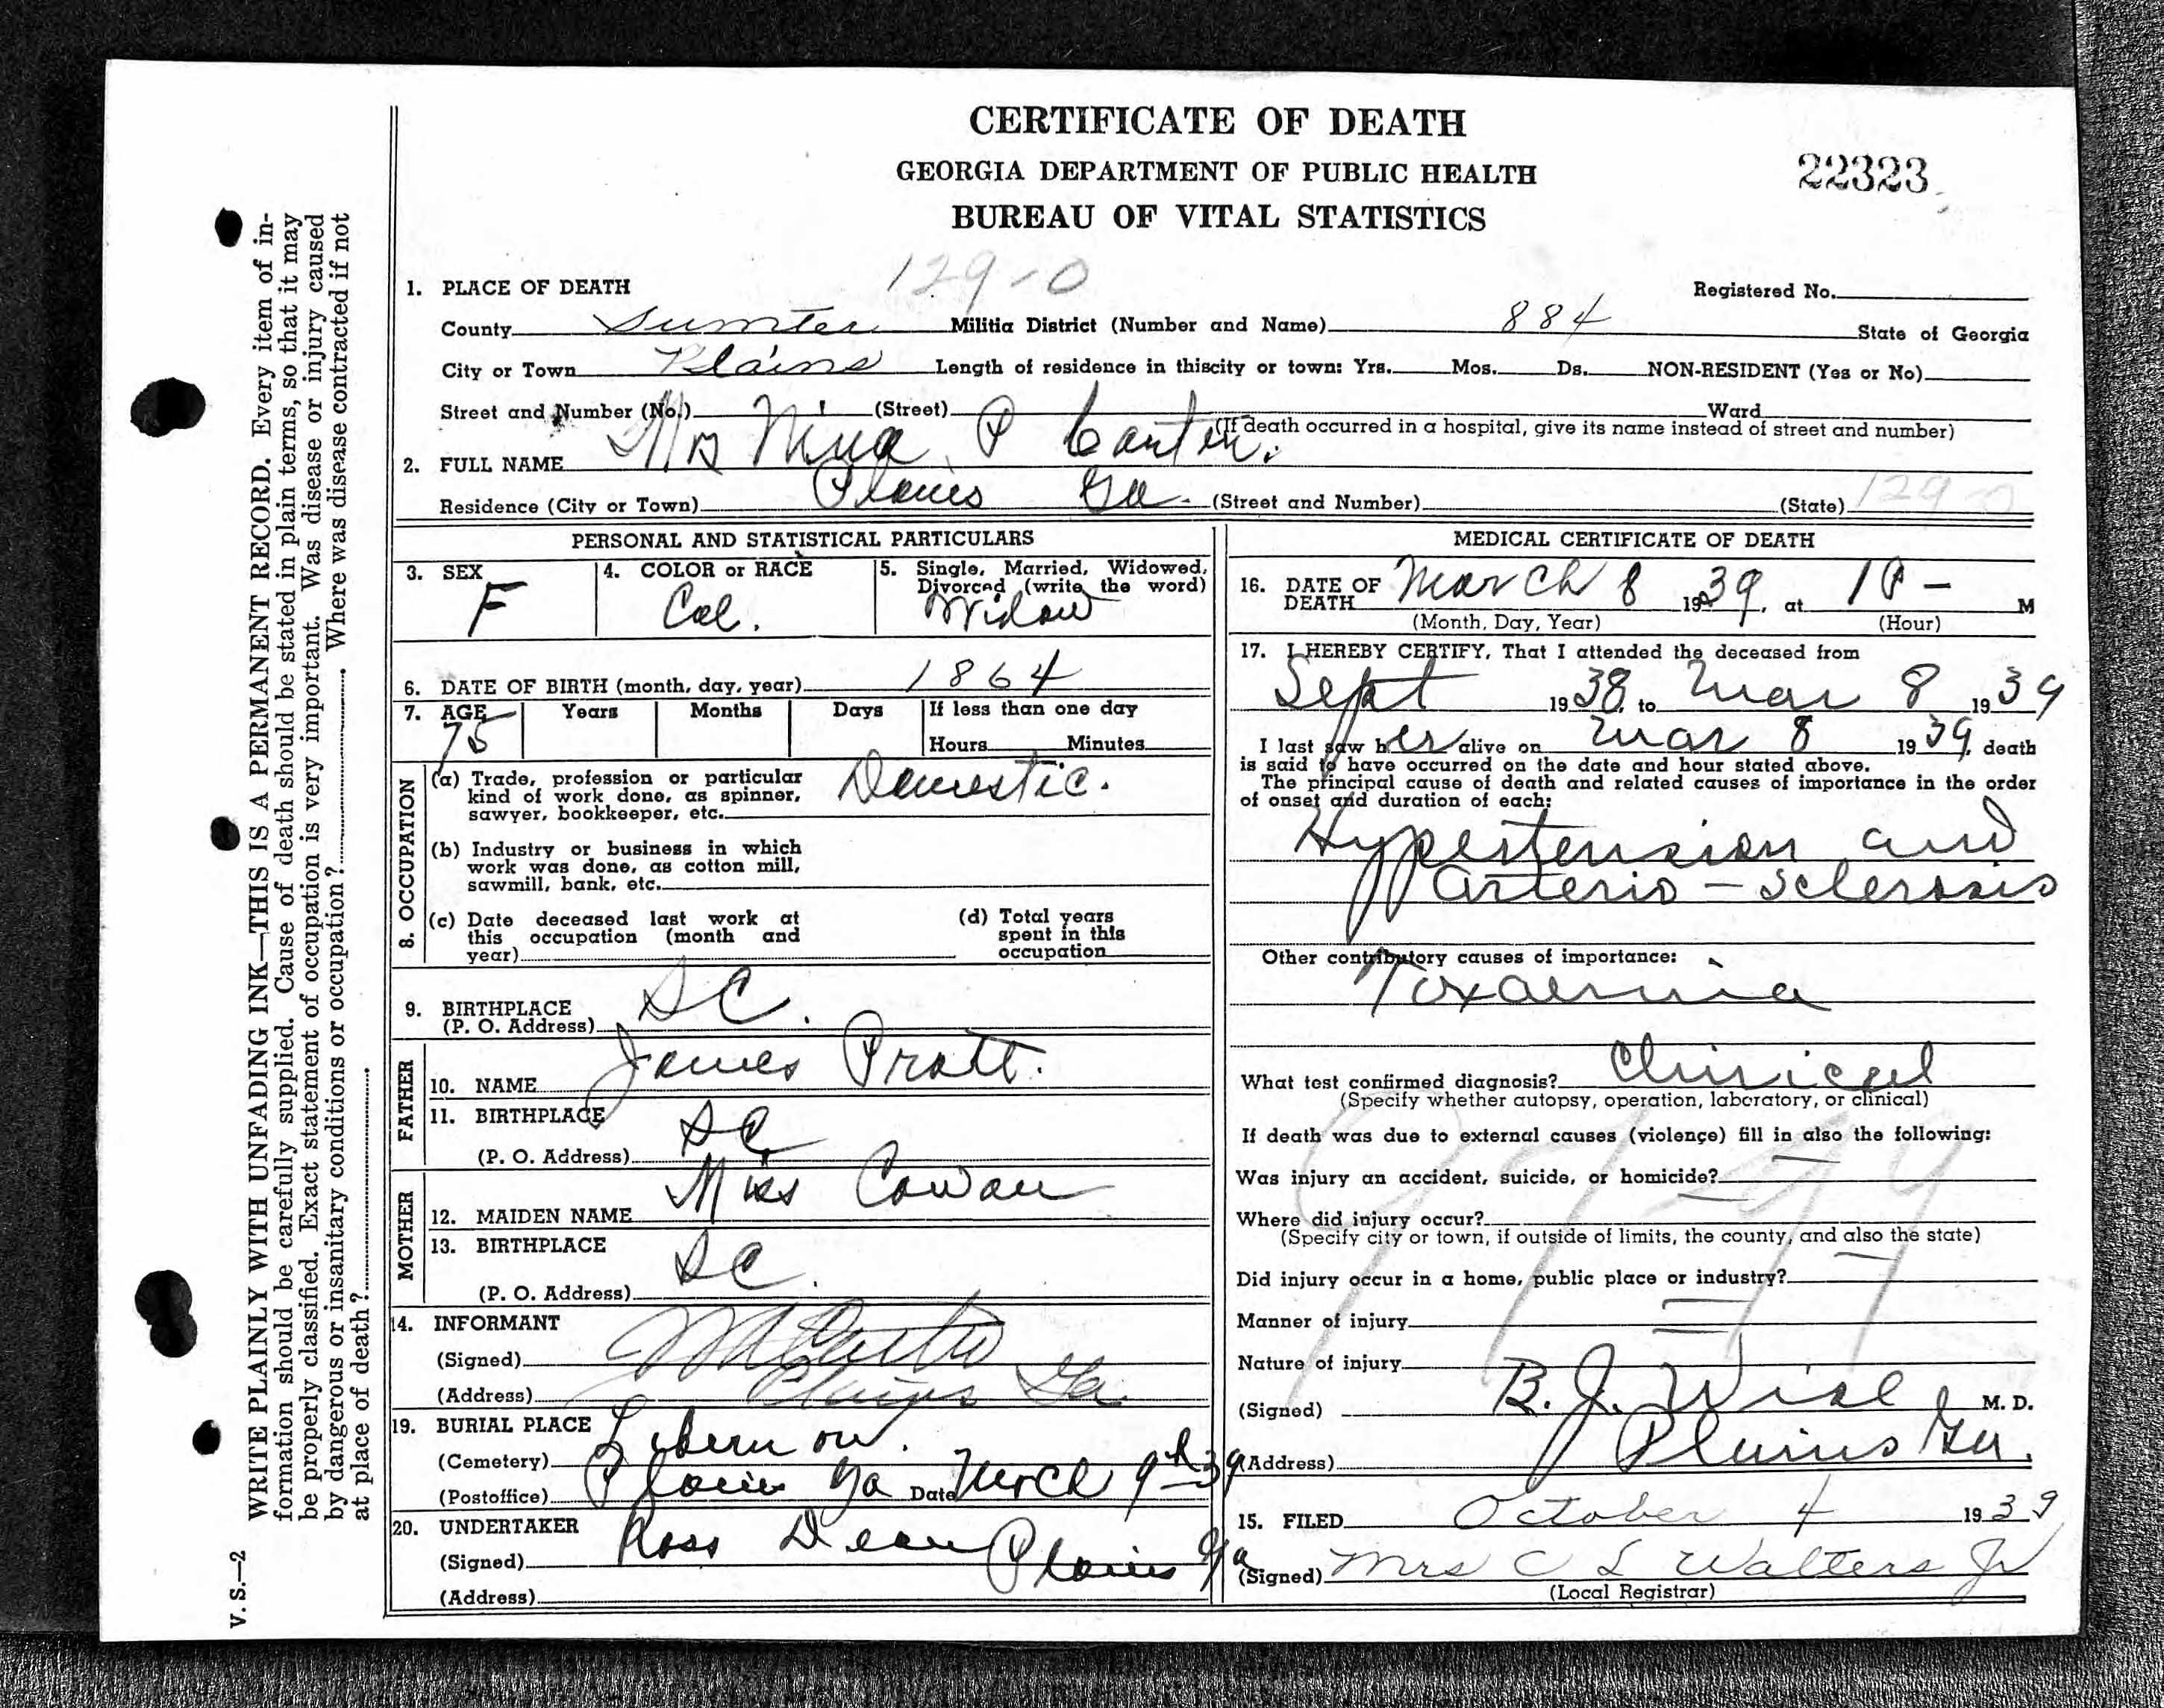 CERTIFICATE OF DEATH
GEORGIA DEPARTMENT OF PUBLIC HEALTH
BUREAU OF VITAL STATISTICS
22323
129-0
1. PLACE OF DEATH Registered No.
County Sumter Militia District (Number and Name) 884 State of Georgia
City or Town Plains Length of residence in this city or town: Yrs. Mos. Ds. NON-RESIDENT (Yes or No)
Street and Number (No.) (Street) Ward
(If death occurred in a hospital, give its name instead of street and number)
2. FULL NAME Mrs Nina P Carter.
Residence (City or Town) Plains Ga. (Street and Number) (State) 129-0
PERSONAL AND STATISTICAL PARTICULARS
3. SEX F
4. COLOR or RACE Col.
5. Single, Married, Widowed, Divorced (write the word) Widow
6. DATE OF BIRTH (month, day, year) 1864
7. AGE 75 Years Months Days If less than one day
Hours Minutes
8. OCCUPATION
(a) Trade, profession or particular Domestic.
kind of work done, as spinner,
sawyer, bookkeeper, etc.
(b) Industry or business in which
work was done, as cotton mill,
sawmill, bank, etc.
(c) Date deceased last work at
this occupation (month and
year)
(d) Total years
spent in this
occupation
9. BIRTHPLACE SC.
(P. O. Address)
FATHER
10. NAME James Pratt.
11. BIRTHPLACE SC
(P. O. Address)
MOTHER
12. MAIDEN NAME Miss Cowan
13. BIRTHPLACE SC.
(P. O. Address)
14. INFORMANT
(Signed) Carter
(Address) Plains Ga.
19. BURIAL PLACE
(Cemetery)
(Postoffice) Plains Ga Date March 9th 39
20. UNDERTAKER Ross Dean
(Signed) Plains Ga
(Address)
MEDICAL CERTIFICATE OF DEATH
16. DATE OF DEATH March 8 1939, at 1P- M
(Month, Day, Year) (Hour)
17. I HEREBY CERTIFY, That I attended the deceased from
Sept 1938, to Mar 8 1939
I last saw her alive on Mar 8 1939, death
is said to have occurred on the date and hour stated above.
The principal cause of death and related causes of importance in the order
of onset and duration of each:
Hypertension and
arterio-sclerosis
Other contributory causes of importance:
Toxaemia
What test confirmed diagnosis? Clinical
(Specify whether autopsy, operation, laboratory, or clinical)
If death was due to external causes (violence) fill in also the following:
Was injury an accident, suicide, or homicide?
Where did injury occur?
(Specify city or town, if outside of limits, the county, and also the state)
Did injury occur in a home, public place or industry?
Manner of injury
Nature of injury
(Signed) B. J. Wise M. D.
(Address) Plains Ga.
15. FILED October 4 1939
(Signed) Mrs C L Walters Jr
(Local Registrar)
WRITE PLAINLY WITH UNFADING INK—THIS IS A PERMANENT RECORD. Every item of in-
formation should be carefully supplied. Cause of death should be stated in plain terms, so that it may
be properly classified. Exact statement of occupation is very important. Was disease or injury caused
by dangerous or insanitary conditions or occupation? Where was disease contracted if not
at place of death?
V. S.—2